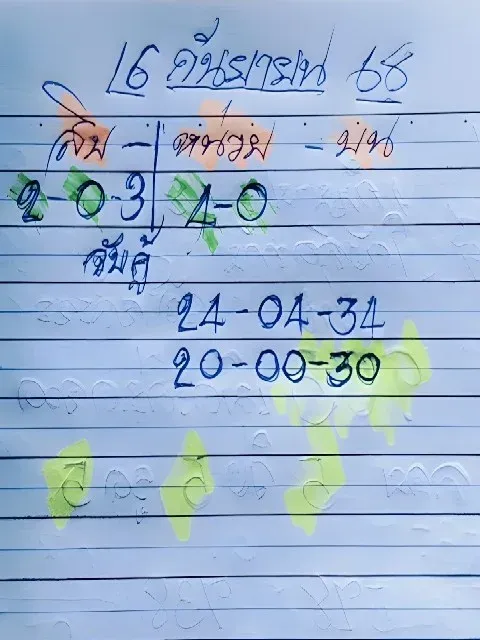 16 กันยายน 68
สิบ - หน่วย - บน
2-0-3 4-0
จับคู่
24-04-34
20-00-30